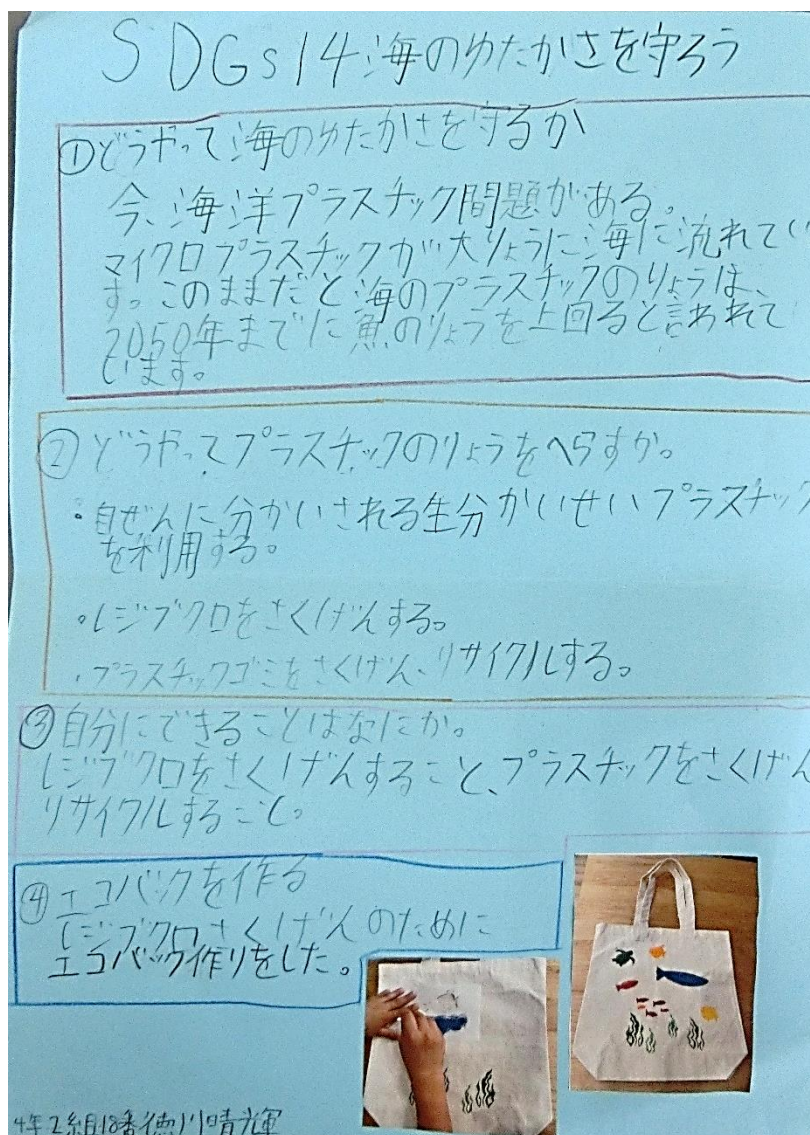 SDGs14海のゆたかさを守ろう
①どうやって海のゆたかさを守るか
今、海洋プラスチック問題がある。
マイクロプラスチックが大りょうに海に流れてい
す。このままだと海のプラスチックのりょうは、
2050年までに魚のりょうを上回ると言われて
います。
②どうやってプラスチックのりょうをへらすか。
・自ぜんに分かいされる生分かいせいプラスチック
を利用する。
・レジブクロをさくげんする。
・プラスチックゴミをさくげん、リサイクルする。
③自分にできることはなにか。
レジブクロをさくげんすること、プラスチックをさくげん
リサイクルすること。
④エコバックを作る
レジブクロさくげんのために
エコバック作りをした。
4年2組18番徳川晴輝